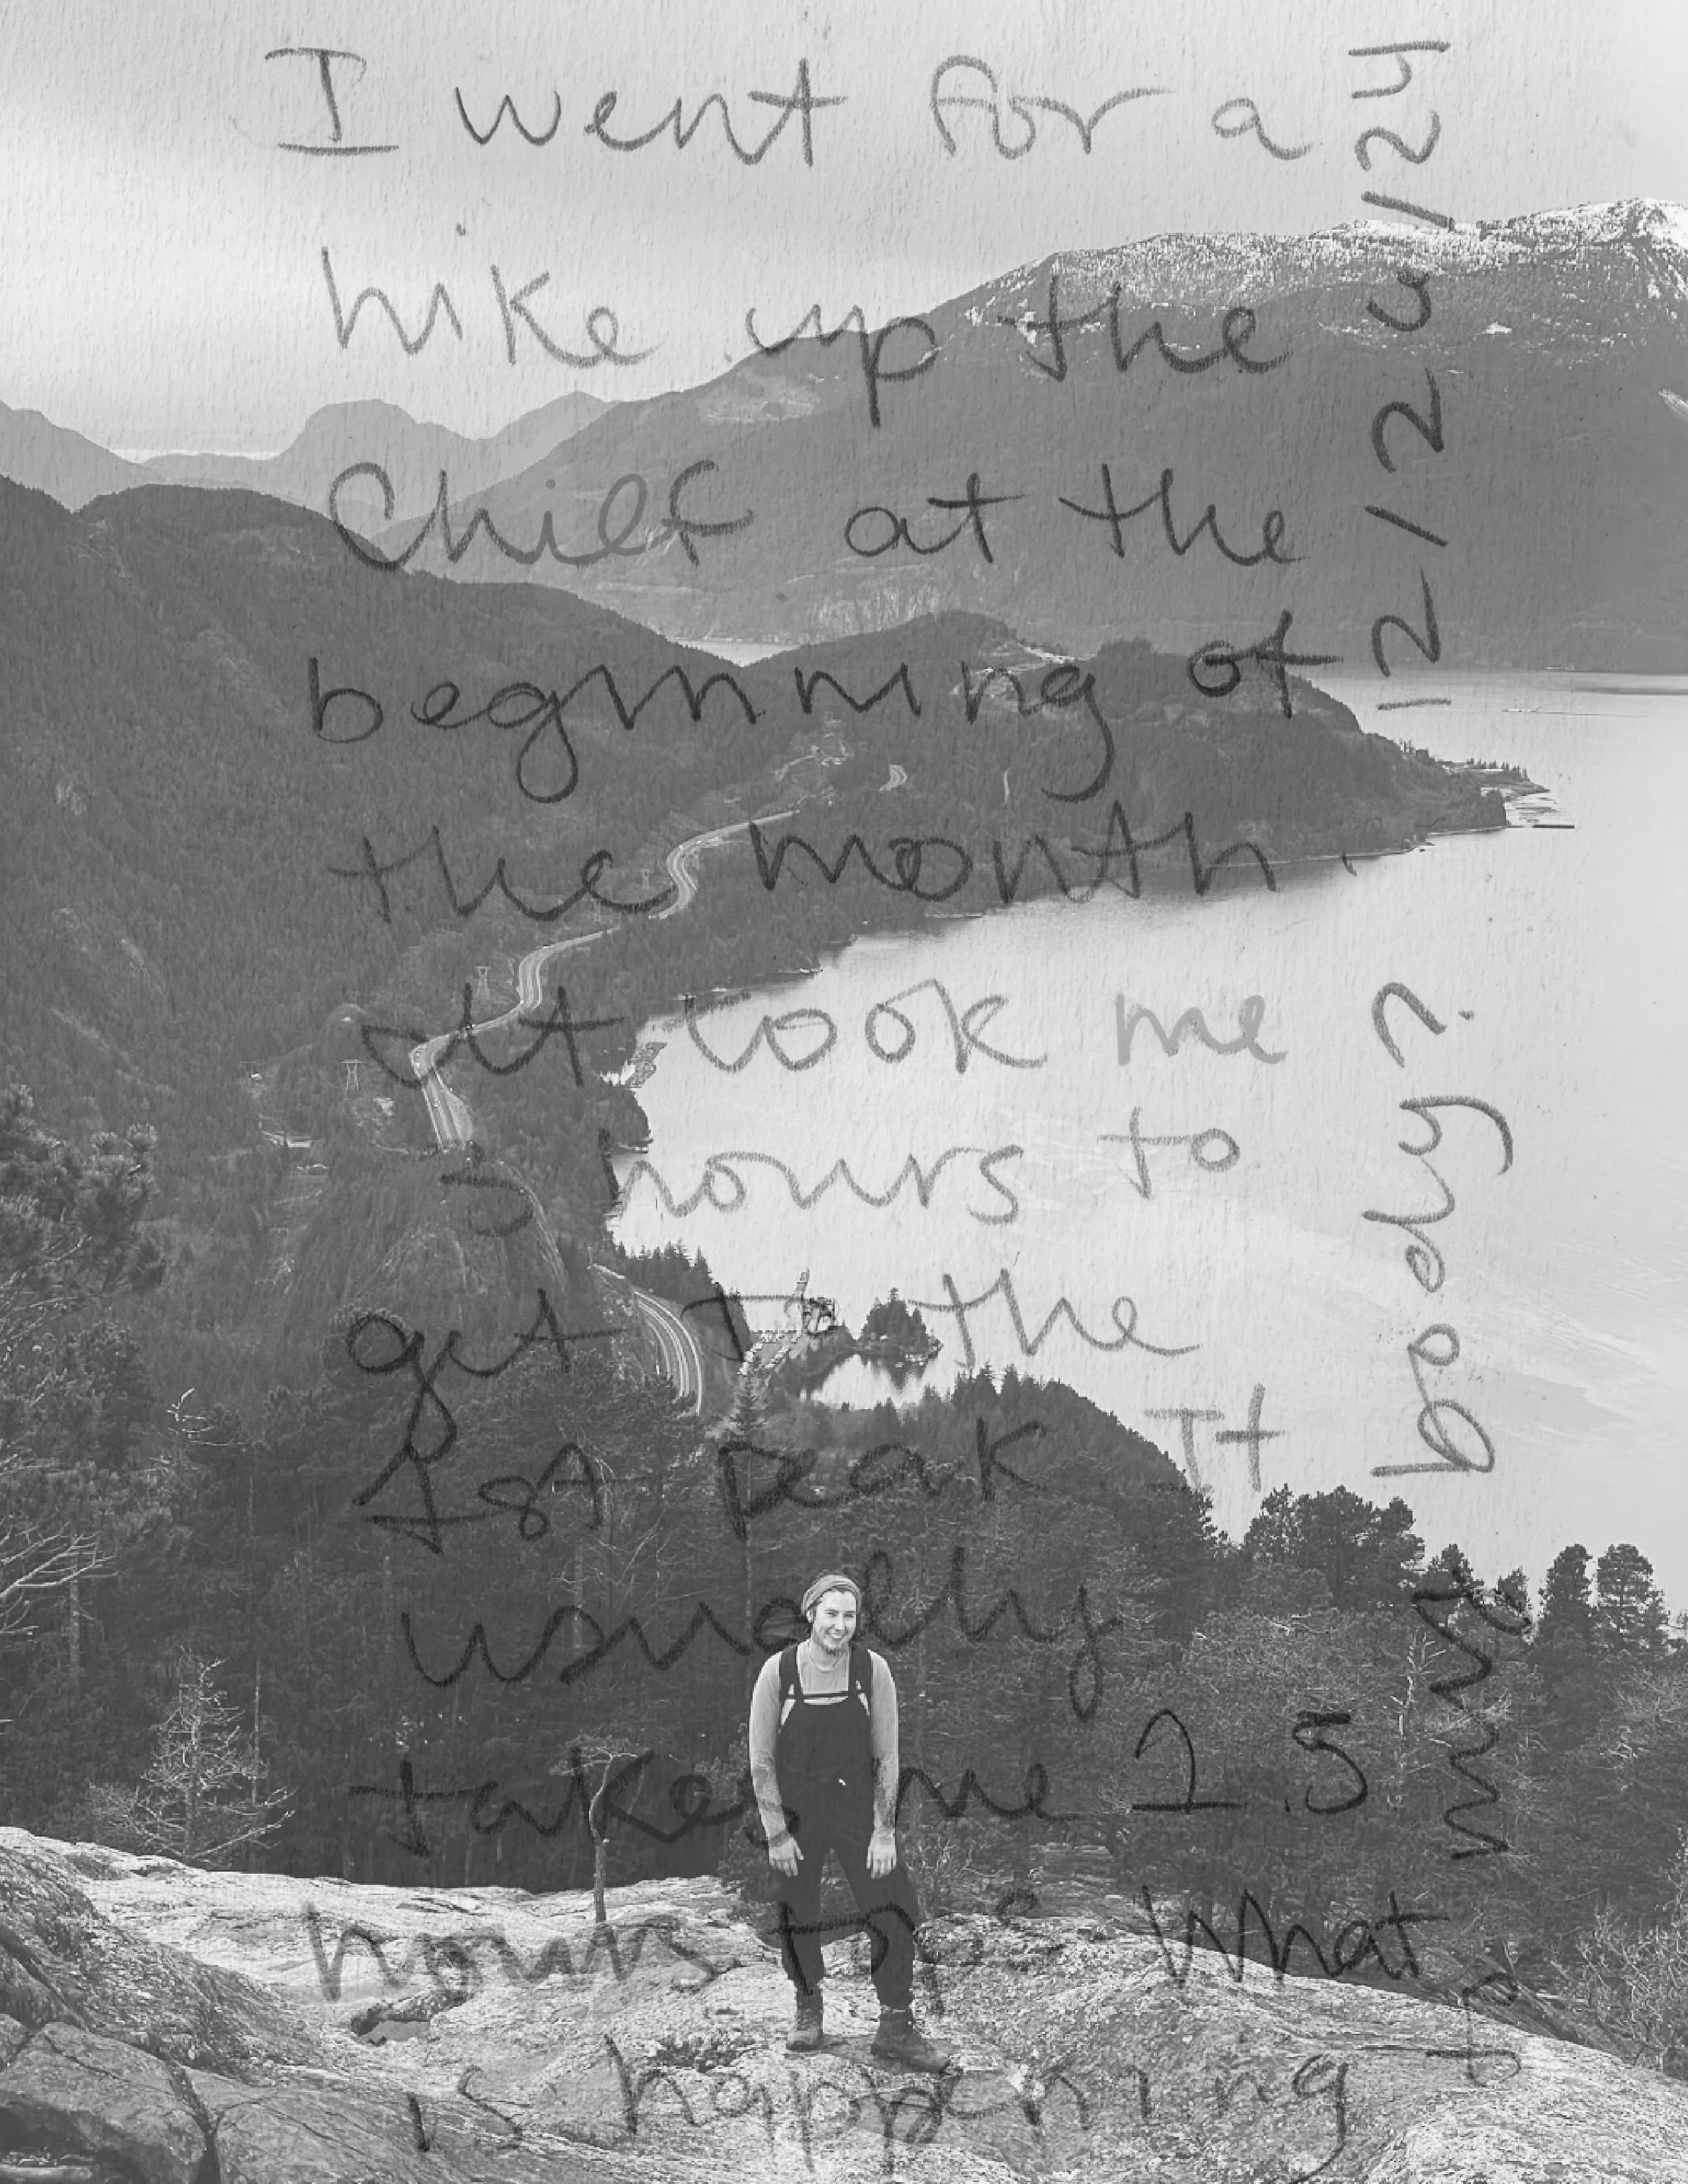 I went for a
hike up the
Chief at the
beginning of
the month.
It took me
3 hours to
get to the
1st peak. It
usually
takes me 2.5
hours top. What
is happening
to my body?